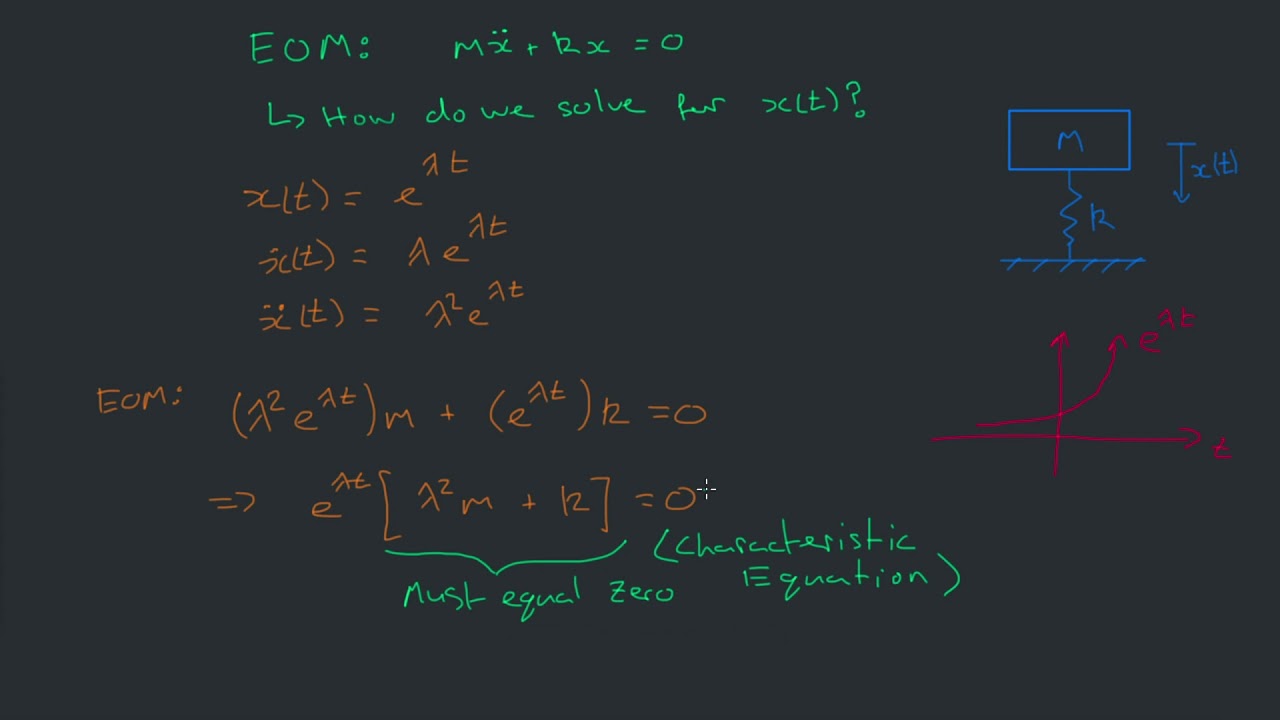 EOM: mẍ + kx = 0
↳ How do we solve for x(t)?
x(t) = e^λt
ẋ(t) = λe^λt
ẍ(t) = λ²e^λt
EOM: (λ²e^λt)m + (e^λt)k = 0
=> e^λt[λ²m + k] = 0
Must equal zero
(Characteristic
Equation)
M
x(t)
k
e^λt
t